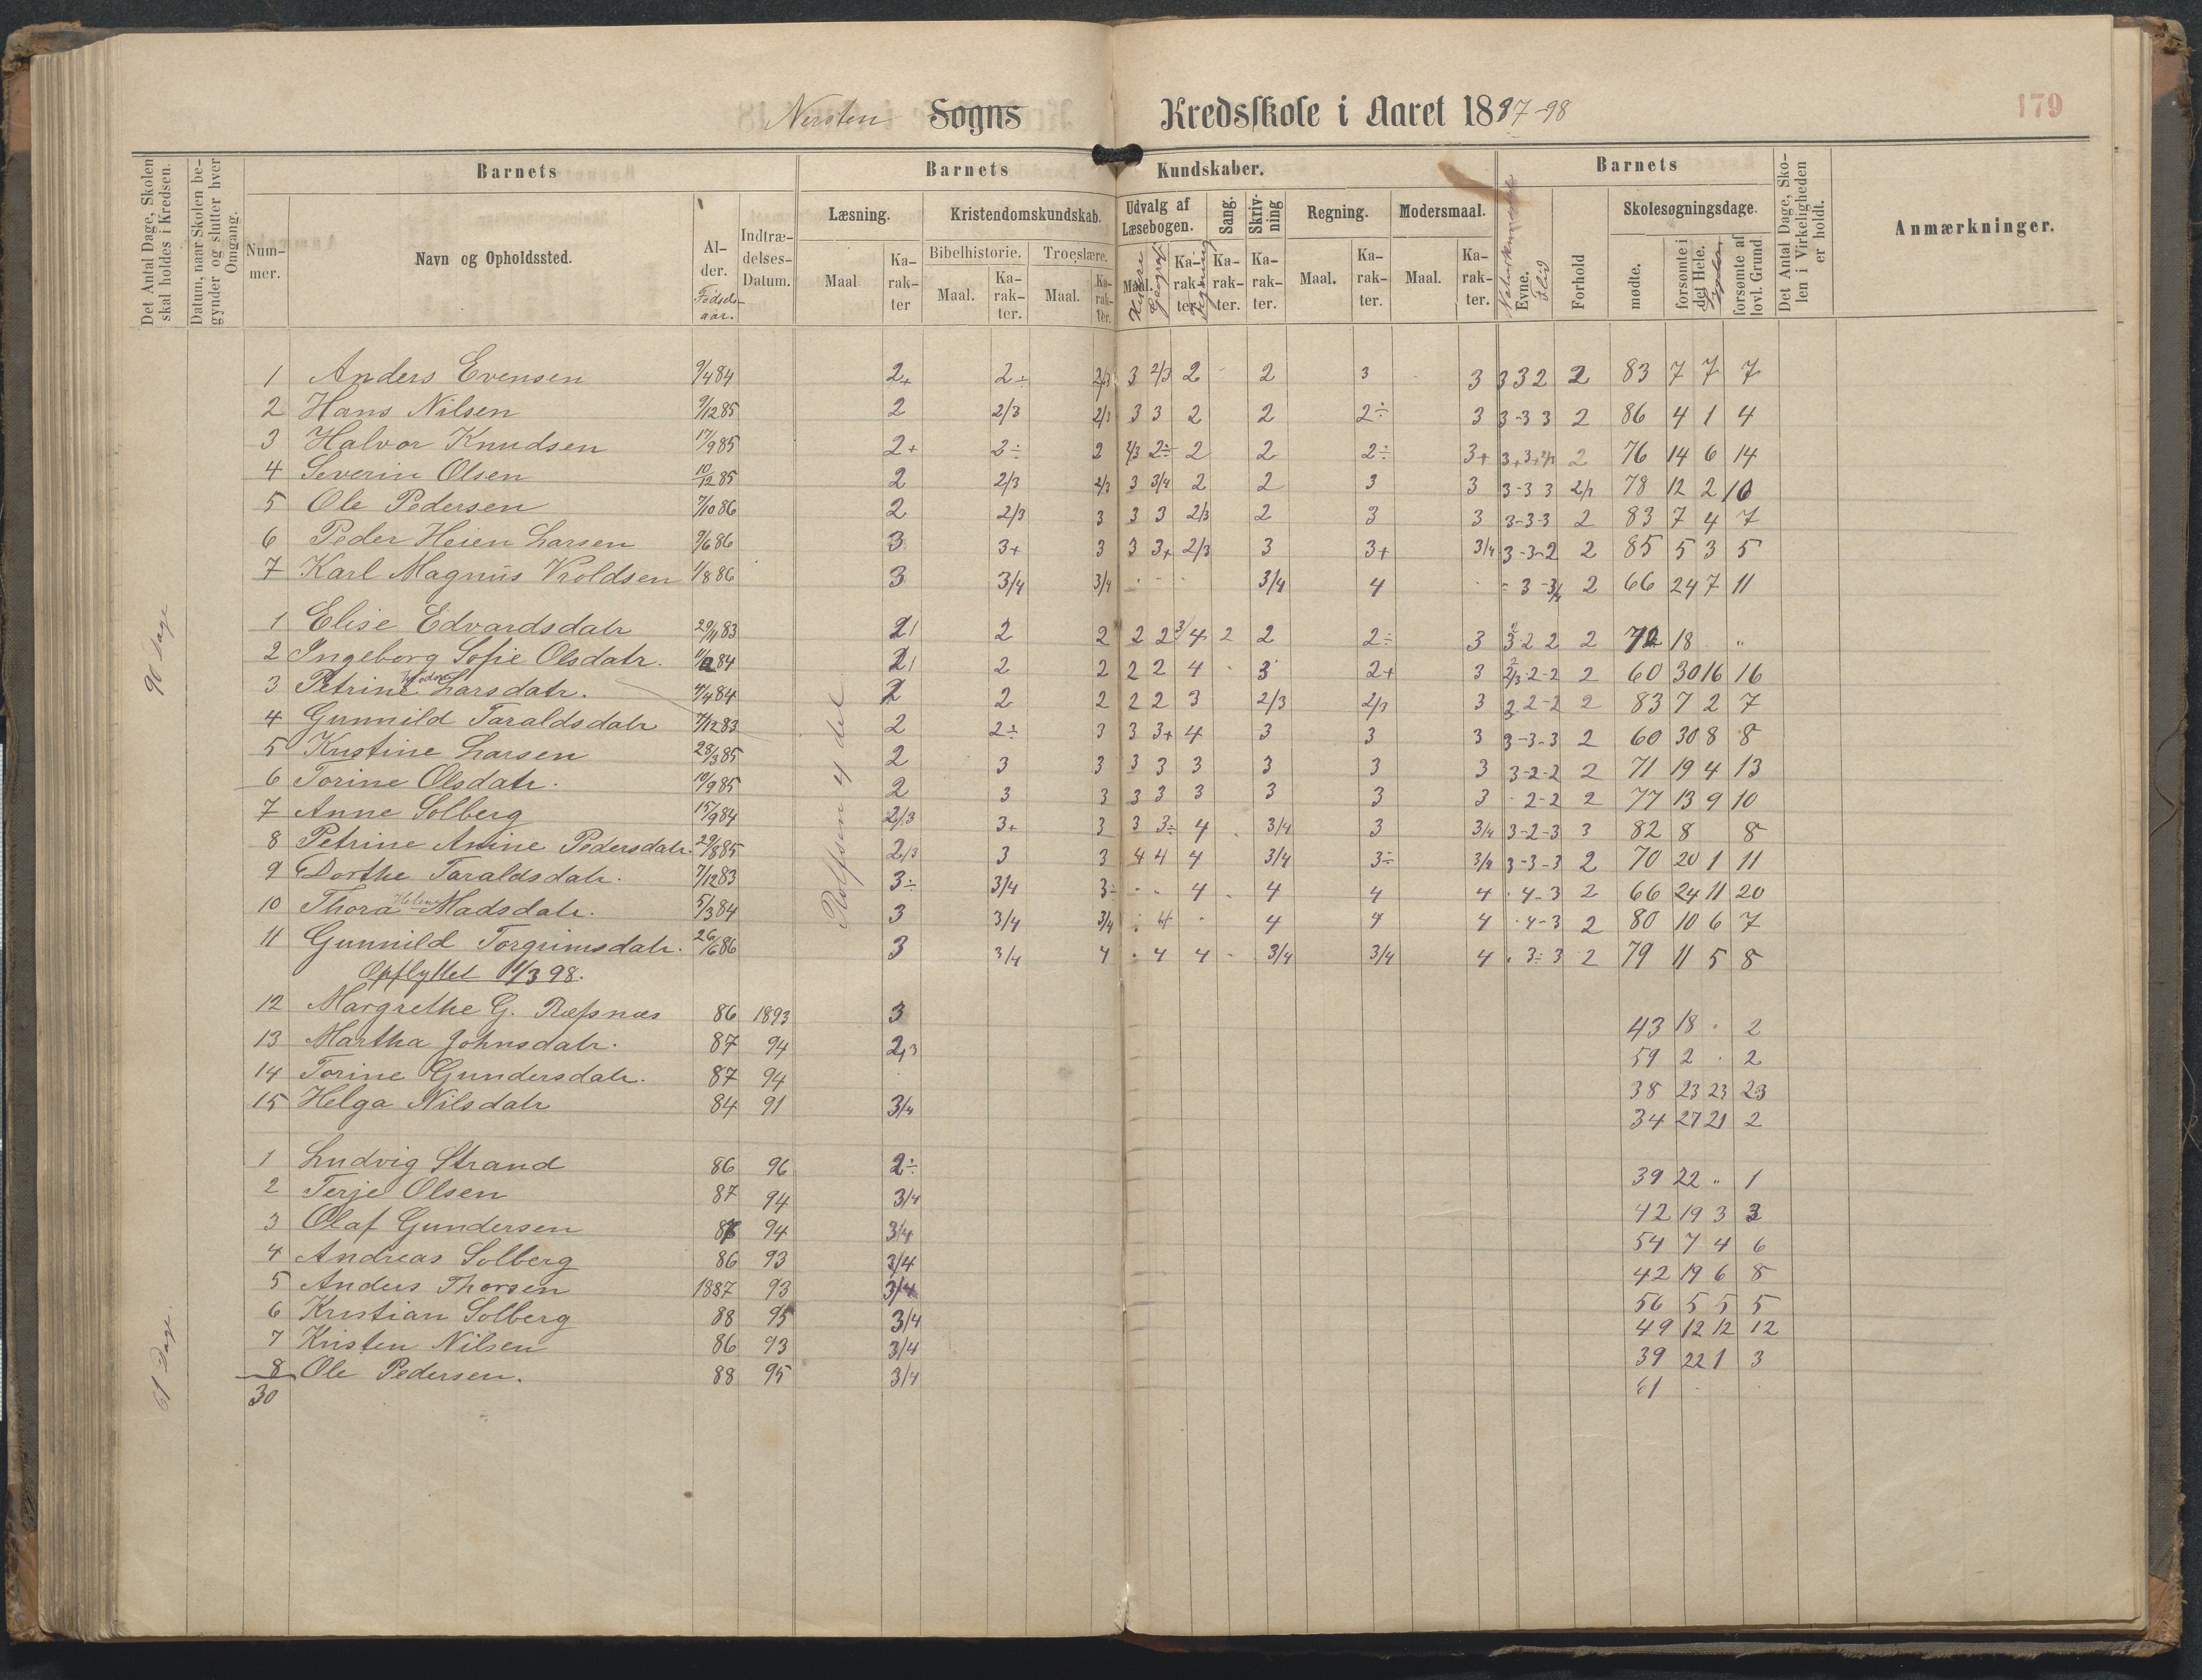 Nersten Sogns Kredsskole i Aaret 1897-98
179
Det Antal Dage, Skolen skal holdes i Kredsen.
Datum, naar Skolen begynder og slutter hver Omgang.
Barnets
Barnets Kundskaber.
Barnets
Det Antal Dage, Skolen i Virkeligheden er holdt.
Anmærkninger.
Nummer.
Navn og Opholdssted.
Alder. Fødselsaar.
Indtrædelses-Datum.
Læsning.
Kristendomskundskab.
Udvalg af Læsebogen.
Sang.
Skrivning
Regning.
Modersmaal.
Evne. Flid
Forhold
Skolesøgningsdage.
Bibelhistorie.
Troeslære.
Maal
Karakter
Maal.
Karakter.
Maal.
Karakter.
Maal.
Karakter.
Karakter.
Karakter.
Maal.
Karakter.
Maal.
Karakter.
mødte.
forsømte i det Hele.
forsømte af lovl. Grund.
90 Dage
1 Anders Evensen 9/4 84 2+ 2÷ 2/3 3 2/3 2 2 3 3 3 3 2 2 83 7 7 7
2 Hans Nilsen 9/12 85 2 2/3 2/3 3 3 2 2 2÷ 3 3-3 3 2 86 4 1 4
3 Halvor Knudsen 17/9 85 2+ 2÷ 2 2/3 2÷ 2 2 2÷ 3+ 2 76 14 6 14
4 Severin Olsen 10/12 85 2 2/3 2/3 3 3/4 2 2 3 3 3-3 3 78 12 2 10
5 Ole Pedersen 7/10 86 2 2/3 3 3 3 2/3 2 3 3 3-3-3 2 83 7 4 7
6 Peder Heien Larsen 9/6 86 3 3+ 3 3 3+ 2/3 3 3+ 3/4 3-3-2 2 85 5 3 5
7 Karl Magnus Vroldsen 1/8 86 3 3/4 3/4 3/4 4 3-3/4 2 66 24 7 11
1 Elise Edvardsdatr 29/11 83 2 2 2 2 2 3/4 2 2 2÷ 3 3-2 2 2 72 18 "
2 Ingeborg Sofie Olsdatr. 84 2 2 2 2 2 4 3 2+ 3 2/3-2-2 2 60 30 16 16
3 Petrine Larsdatr. 4/4 84 2 2 2 2 2 3 2/3 2/3 3 2-2 2 83 7 2 7
4 Gunnild Taraldsdatr 7/12 83 2 2÷ 3 3 3+ 4 3 3 3 3-3-3 2 60 30 8 8
5 Kristine Larsen 28/3 85 2 3 3 3 3 3 3 3 3 3-2-2 2 71 19 4 13
6 Torine Olsdatr. 10/9 85 2 3 3 3 3 3 3 3 3 2-2 2 77 13 9 10
7 Anne Solberg 15/9 84 2/3 3+ 3 3 3÷ 4 3/4 3 3/4 3-2-3 3 82 8 8
8 Petrine Amine Pedersdatr. 29/8 85 2/3 3 3 4 4 4 3/4 3÷ 3/4 3-3-3 2 70 20 1 11
9 Dorthe Taraldsdatr. 7/12 83 3÷ 3/4 3÷ 4 4 4 4 4-3 2 66 24 11 20
10 Thora Helene Madsdatr. 5/3 84 3 3/4 3/4 4 4 4 4 4-3 2 80 10 6 7
11 Gunnild Torgrimsdatr. 26/6 86 3 3/4 4 4 4 3/4 3/4 4 3÷3 2 79 11 5 8
Rolfsen 4 del
Opflyttet 11/3 98.
12 Margrethe G. Ræfsnæs 86 1893 3 43 18 2
13 Martha Johnsdatr. 87 94 2/3 59 2 2
14 Torine Gundersdatr. 87 94 38 23 23 23
15 Helga Nilsdatr 84 91 3/4 34 27 21 2
61 Dage.
1 Ludvig Strand 86 96 2÷ 39 22 " 1
2 Terje Olsen 87 94 3/4 42 19 3 3
3 Olaf Gundersen 94 3/4 54 7 4 6
4 Andreas Solberg 86 93 3/4 42 19 6 8
5 Anders Thorsen 1887 93 3/4 56 5 5 5
6 Kristian Solberg 88 95 3/4 49 12 12 12
7 Kristen Nilsen 86 93 3/4 39 22 1 3
8 Ole Pedersen. 88 95 3/4 61
30